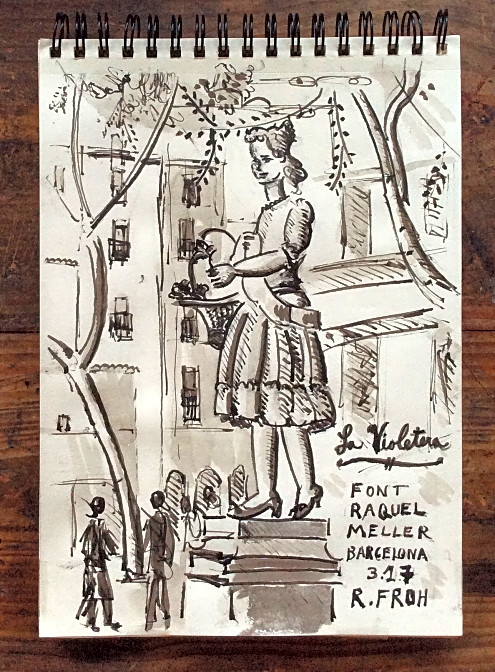 La Violetera
FONT
RAQUEL
MELLER
BARCELONA
3.17
R.FROH